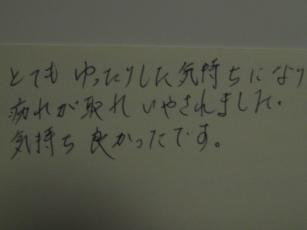 とても ゆったりした気持ちになり
疲れが取れ いやされました.
気持ち 良かったです。